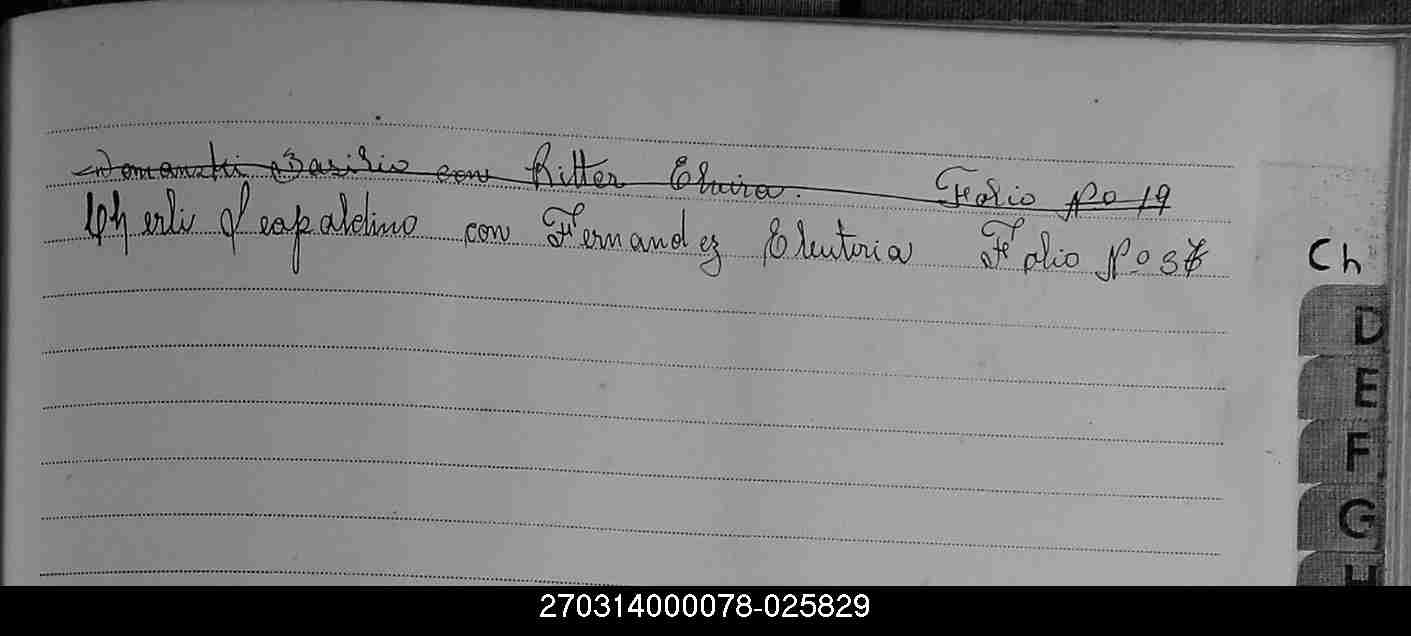 Domanski Basilio con Ritter Elvira. Folio No 19
Cherli Leopaldino con Fernandez Eleuteria Folio No 37
Ch
D
E
F
G
H
270314000078-025829